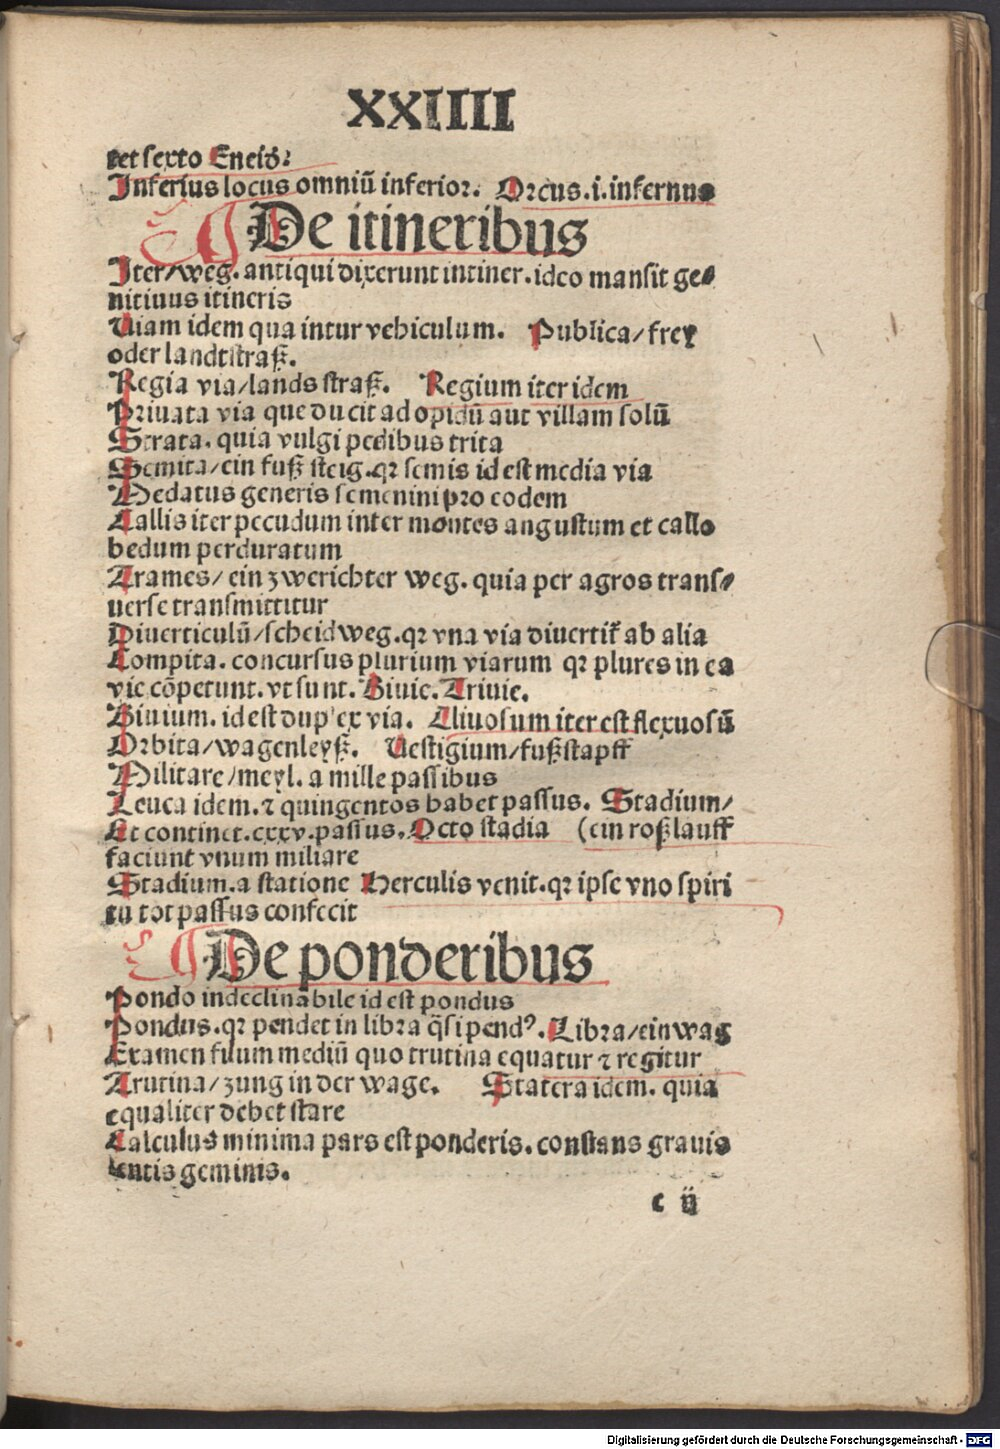 XXIIII
tet sexto Eneid:
Inferius locus omniū inferior. Orcus.i.infernus
De itineribus
Iter/weg. antiqui dixerunt intiner. ideo mansit ge⸗
nitiuus itineris
Uiam idem qua intur vehiculum. Publica/frey
oder landtstraß.
Regia via/lands straß. Regium iter idem
Priuata via que ducit ad opidū aut villam solū
Strata. quia vulgi pedibus trita
Semita/ein fuß steig.qꝛ semis id est media via
Pedatus generis femenini pro eodem
Callis iter pecudum inter montes angustum et callo
bedum perduratum
Trames/ein zwerichter weg. quia per agros trans⸗
uerse transmittitur
Diuerticulū/scheidweg.qꝛ vna via diuertit̄ ab alia
Compita. concursus plurium viarum qꝛ plures in ea
vie cōpetunt. vt sunt. Biuie. Triuie.
Biuium. id est dup' ex via. Cliuosum iter est flexuosū
Orbita/wagenleyß. Uestigium/fußstapff
Militare/meyl. a mille passibus
Leuca idem. ⁊ quingentos habet passus. Stadium/
Et continet.cxxv.passus. Octo stadia (ein roßlauff
faciunt vnum miliare
Stadium.a statione Herculis venit.qꝛ ipse vno spiri
tu tot passus confecit
De ponderibus
Pondo indeclinabile id est pondus
Pondus.qꝛ pendet in libra q̄si pendꝰ. Libra/ein wag
Examen filum mediū quo trutina equatur ⁊ regitur
Trutina/zung in der wage. Statera idem. quia
equaliter debet stare
Calculus minima pars est ponderis. constans grauis
lentis geminis.
c ij
Digitalisierung gefördert durch die Deutsche Forschungsgemeinschaft - DFG